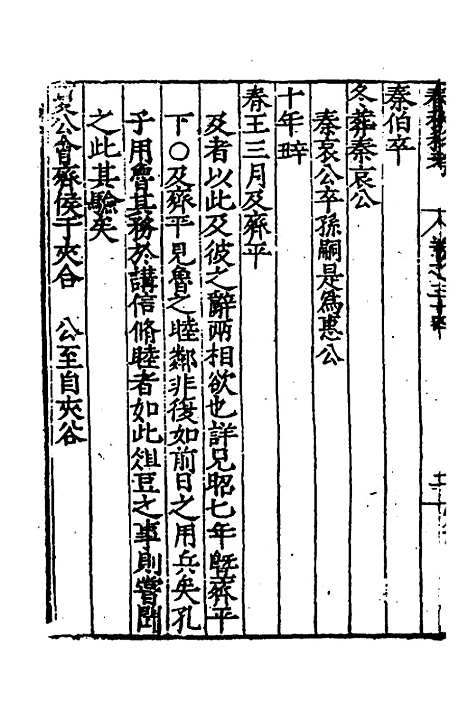 秦伯卒
冬葬秦哀公
秦哀公卒孫嗣是為惠公
十年
春王三月及齊平
及者以此及彼之辭兩相欲也詳見昭七年曁齊平
下○及齊平見魯之睦鄰非復如前日之用兵矣孔
子用魯其務於講信脩睦者如此俎豆之事則嘗聞
之此其驗矣
夏公會齊侯于夾谷　公至自夾谷